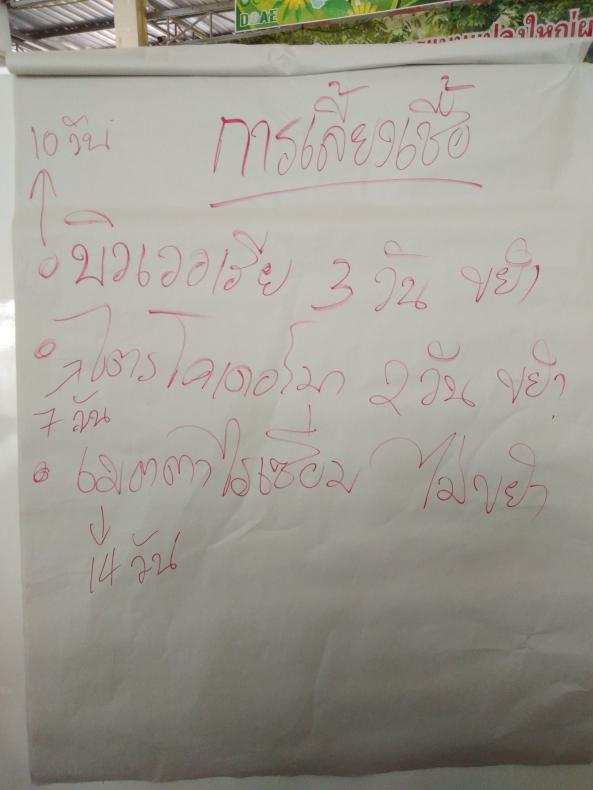 DOAE
แปลงใหญ่ผ
การเลี้ยงเชื้อ
10 วัน
บิวเวอเรีย 3 วัน ขยำ
ไตรโคเดอร์มา 2 วัน ขยำ
7 วัน
เมตตาไรเซี่ยม ไม่ขยำ
14 วัน